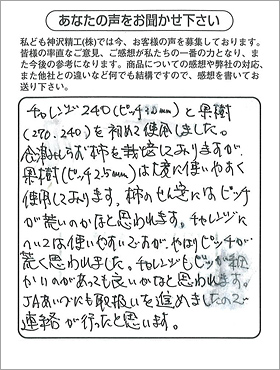 あなたの声をお聞かせ下さい
私ども神沢精工(株)では今、お客様の声を募集しております。
皆様の率直なご意見、ご感想が品質向上の一番の力となり、また
今後の参考になります。商品についての感想や弊社の対応、
また他社との違いなど何でも結構ですので、感想を書いてお
送り下さい。
チャレンジ240(ピッチ3.0mm)と果樹
(270.240)を初めて使用しました。
会津みしらず柿を栽培しておりますが、
果樹(ピッチ2.5mm)は大変に使いやすく
使用しております。柿のせん定にはピッチ
が荒いのかなと思われます。チャレンジに
ついては使いやすいですが、やはりピッチが
荒く思われました。チャレンジもピッチが細
かいのがあっても良いかなと思われます。
JAあいづにも取扱いを進めましたので
連絡が行ったと思います。